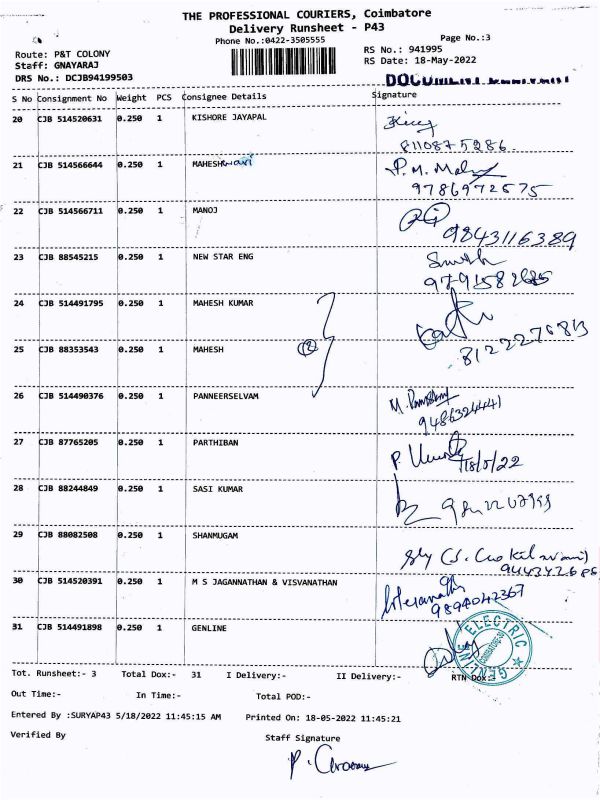 THE PROFESSIONAL COURIERS, Coimbatore
Delivery Runsheet - P43
Phone No.:0422-3505555
Page No.:3
Route: P&T COLONY
RS No.: 941995
Staff: GNAYARAJ
RS Date: 18-May-2022
DRS No.: DCJB94199503
S No Consignment No Weight PCS Consignee Details Signature
20 CJB 514520631 0.250 1 KISHORE JAYAPAL
8110875286
21 CJB 514566644 0.250 1 MAHESHwari
9786972575
22 CJB 514566711 0.250 1 MANOJ
9843116389
23 CJB 88545215 0.250 1 NEW STAR ENG
24 CJB 514491795 0.250 1 MAHESH KUMAR
25 CJB 88353543 0.250 1 MAHESH
26 CJB 514490376 0.250 1 PANNEERSELVAM
27 CJB 87765205 0.250 1 PARTHIBAN
18/5/22
28 CJB 88244849 0.250 1 SASI KUMAR
29 CJB 88082508 0.250 1 SHANMUGAM
30 CJB 514520391 0.250 1 M S JAGANNATHAN & VISVANATHAN
9894042367
31 CJB 514491898 0.250 1 GENLINE
GENLINE ELECTRIC
Tot. Runsheet:- 3 Total Dox:- 31 I Delivery:- II Delivery:- RTN Dox:-
Out Time:- In Time:- Total POD:-
Entered By :SURYAP43 5/18/2022 11:45:15 AM Printed On: 18-05-2022 11:45:21
Verified By Staff Signature